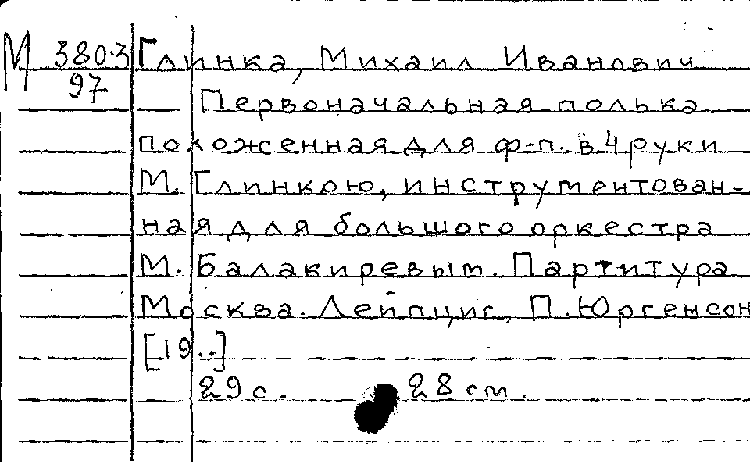 М 380-3 Глинка, Михаил Иванович
97
Первоначальная полька
положенная для ф-п. в 4 руки
М. Глинкою, инструментован-
ная для большого оркестра
М. Балакиревым. Партитура
Москва. Лейпциг, П. Юргенсон
[19..]
29 с. 28 см.